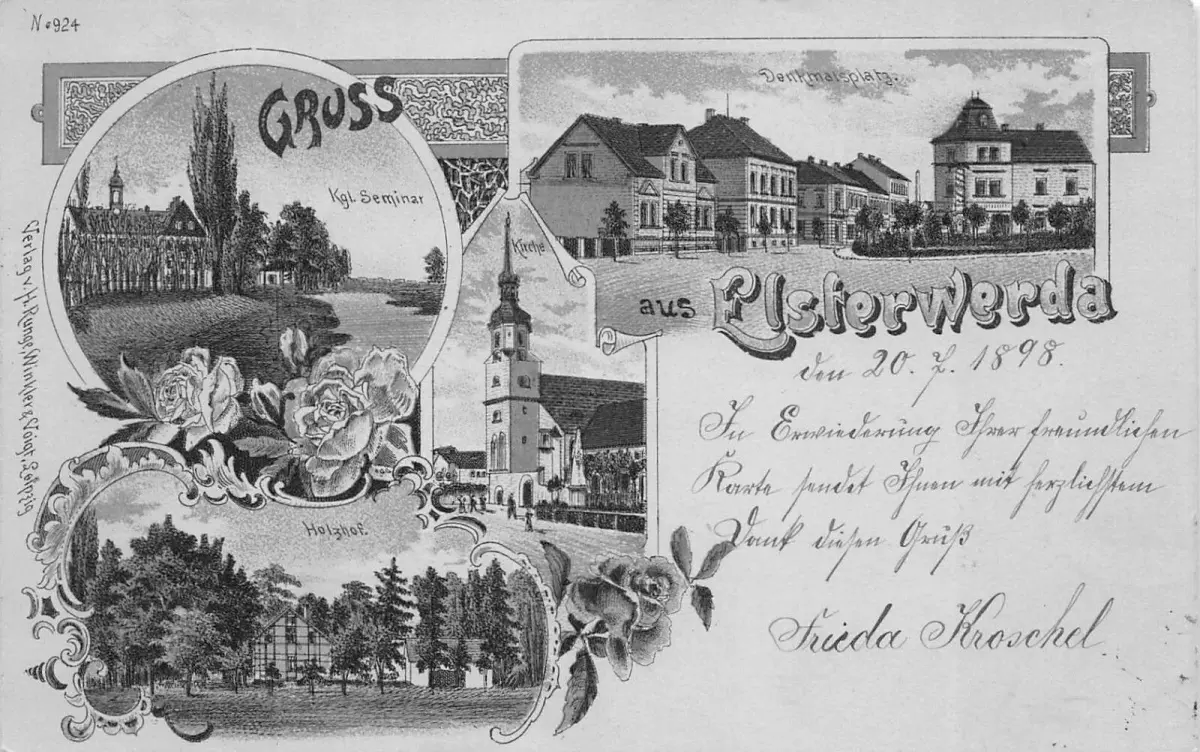 No 924
GRUSS
Kgl. Seminar
Denkmalsplatz.
Kirche
aus Elsterwerda
den 20. 7. 1898.
In Erwiederung Ihrer freundlichen
Karte sendet Ihnen mit herzlichstem
Dank diesen Gruß
Frieda Kroschel.
Holzhof.
Verlag v. H. Runge, Winkler & Voigt, Leipzig